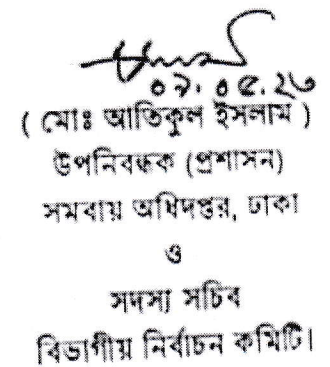 ০৯.০৫.২৩
( মোঃ আতিকুল ইসলাম )
উপনিবন্ধক (প্রশাসন)
সমবায় অধিদপ্তর, ঢাকা
ও
সদস্য সচিব
বিভাগীয় নির্বাচন কমিটি।